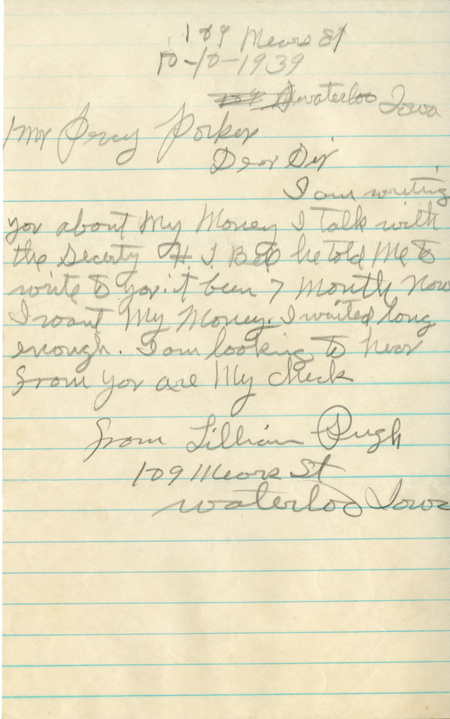 109 Mears St
10-10-1939
Waterloo Iowa
Mr Percy Parker
Dear Sir
I am writing
you about My Money I talk with
the Securty # I B he told Me to
write to you. it been 7 Month Now
I want My Money. I waited long
enough. I am looking to hear
from you are My check
from Lillian Pugh
109 Mears St
Waterloo Iowa